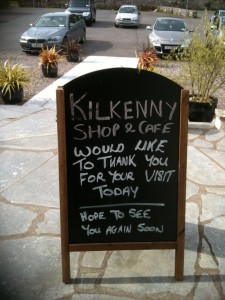 KILKENNY
SHOP & CAFE
WOULD LIKE
TO THANK YOU
FOR YOUR VISIT
TODAY
HOPE TO SEE
YOU AGAIN SOON